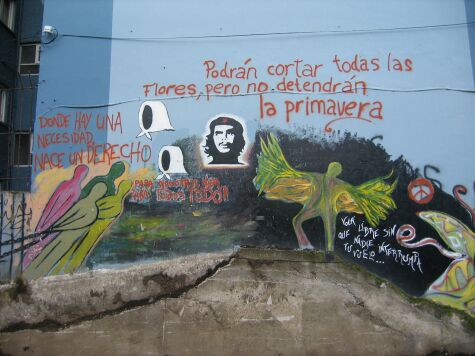 Podrán cortar todas las
Flores, pero no detendrán
la primavera
DONDE HAY UNA
NECESIDAD
NACE UN DERECHO
¡PARA
TODO!!
VOLA LIBRE SIN
QUE NADIE INTERRUMPA
TU VUELO...